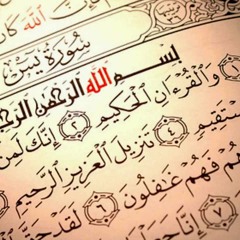 الله كا
سُورَةُ يسٓ
بِسْمِ اللَّهِ الرَّحْمَٰنِ الرَّحِيمِ
وَالْقُرْءَانِ الْحَكِيمِ ٢ إِنَّكَ لَمِنَ
ـسْتَقِيمٍ ٤ تَنزِيلَ الْعَزِيزِ الرَّحِيمِ
ـهُمْ فَهُمْ غَٰفِلُونَ ٦ لَقَدْ حَقَّ
٧ إِنَّا